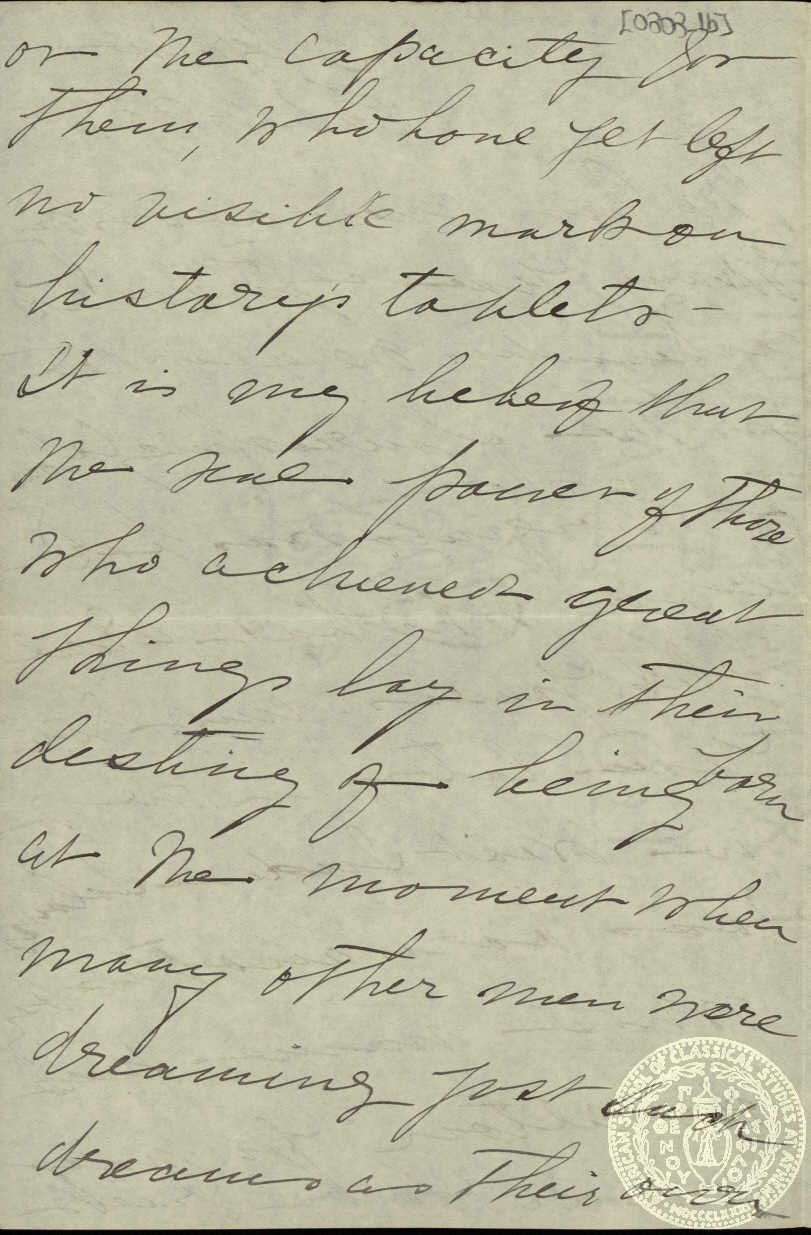 [0303-1b]
or the capacity for
them, who have yet left
no visible mark on
history's tablets -
It is my belief that
the real power of those
who achieved great
things lay in their
destiny of being born
at the moment when
many other men were
dreaming just such
dreams as their own,
AMERICAN SCHOOL OF CLASSICAL STUDIES AT ATHENS